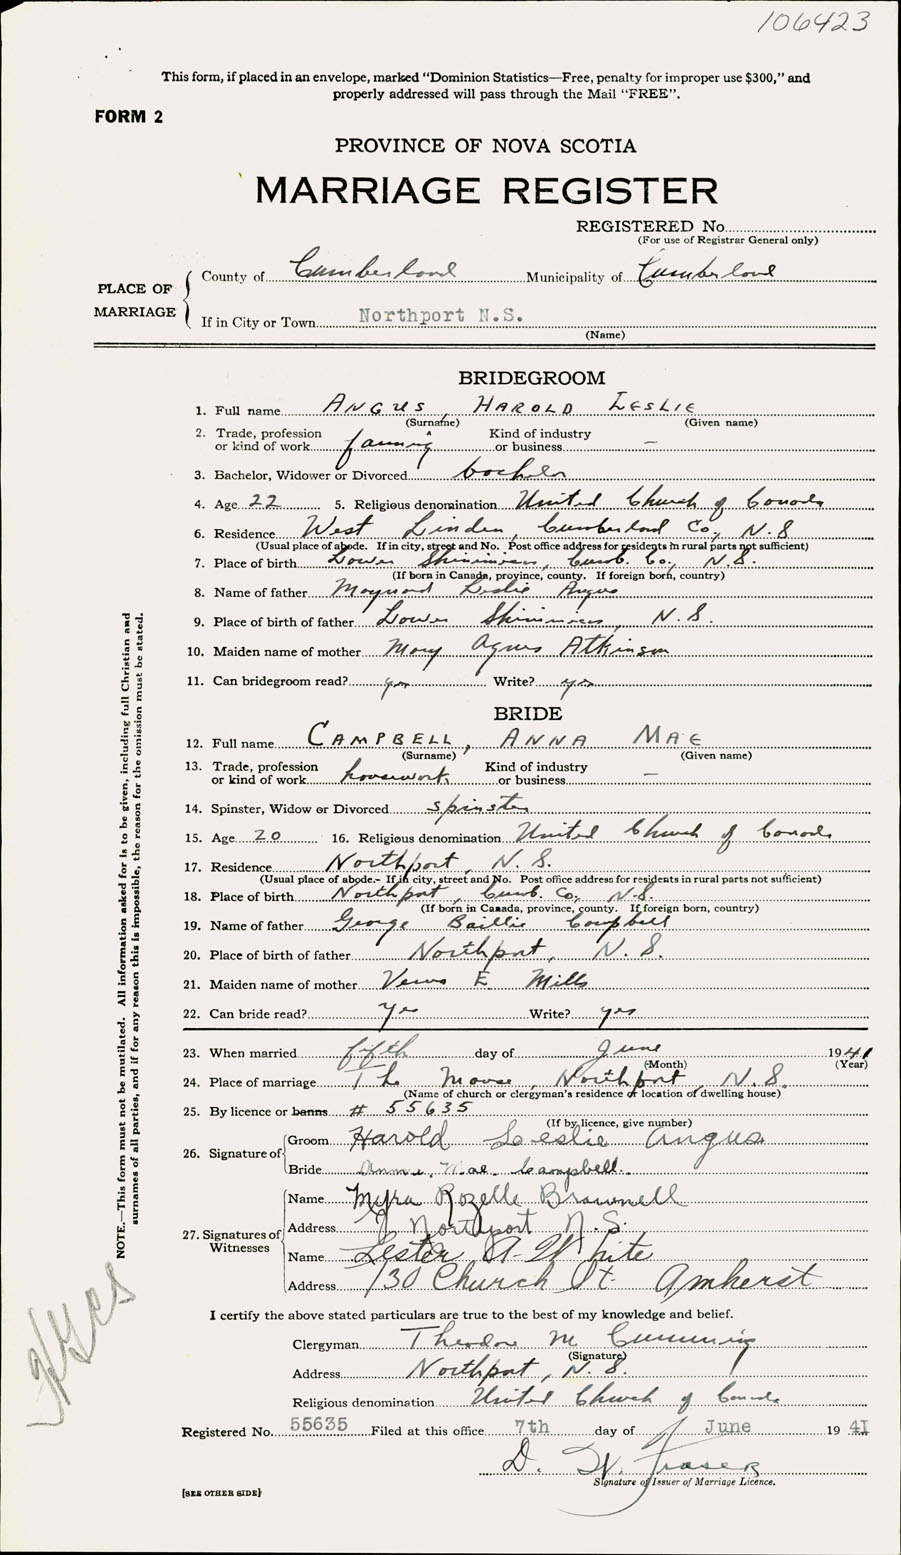 106423
This form, if placed in an envelope, marked “Dominion Statistics—Free, penalty for improper use $300,” and
properly addressed will pass through the Mail “FREE”.
FORM 2
PROVINCE OF NOVA SCOTIA
MARRIAGE REGISTER
REGISTERED No.
(For use of Registrar General only)
PLACE OF MARRIAGE
County of Cumberland Municipality of Cumberland
If in City or Town Northport N.S.
(Name)
BRIDEGROOM
1. Full name ANGUS, HAROLD LESLIE
(Surname) (Given name)
2. Trade, profession or kind of work farming Kind of industry or business —
3. Bachelor, Widower or Divorced bachelor
4. Age 22 5. Religious denomination United Church of Canada
6. Residence West Linden, Cumberland Co., N.S
(Usual place of abode. If in city, street and No. Post office address for residents in rural parts not sufficient)
7. Place of birth Lower Shinimicas, Cumb. Co., N.S.
(If born in Canada, province, county. If foreign born, country)
8. Name of father Maynard Leslie Angus
9. Place of birth of father Lower Shinimicas, N.S.
10. Maiden name of mother Mary Agnes Atkinson
11. Can bridegroom read? yes Write? yes
BRIDE
12. Full name CAMPBELL, ANNA MAE
(Surname) (Given name)
13. Trade, profession or kind of work housework Kind of industry or business —
14. Spinster, Widow or Divorced spinster
15. Age 20 16. Religious denomination United Church of Canada
17. Residence Northport, N.S.
(Usual place of abode.- If in city, street and No. Post office address for residents in rural parts not sufficient)
18. Place of birth Northport, Cumb. Co., N.S.
(If born in Canada, province, county. If foreign born, country)
19. Name of father George Baillie Campbell
20. Place of birth of father Northport, N.S.
21. Maiden name of mother E Mills
22. Can bride read? Yes Write? yes
23. When married fifth day of June 1941
(Month) (Year)
24. Place of marriage The Manse, Northport, N.S.
(Name of church or clergyman's residence or location of dwelling house)
25. By licence or banns # 55635
(If by licence, give number)
26. Signature of
Groom Harold Leslie Angus
Bride Anna Mae Campbell.
27. Signatures of Witnesses
Name Myra Rozelle Brownell
Address Northport N.S.
Name Lester A. White
Address 130 Church St. Amherst
I certify the above stated particulars are true to the best of my knowledge and belief.
Clergyman Theodore M Cumming
(Signature)
Address Northport, N.S.
Religious denomination United Church of Canada
Registered No. 55635 Filed at this office 7th day of June 1941
D. W. Fraser
Signature of Issuer of Marriage Licence.
[SEE OTHER SIDE]
NOTE.—This form must not be mutilated. All information asked for is to be given, including full Christian and
surnames of all parties, and if for any reason this is impossible, the reason for the omission must be stated.